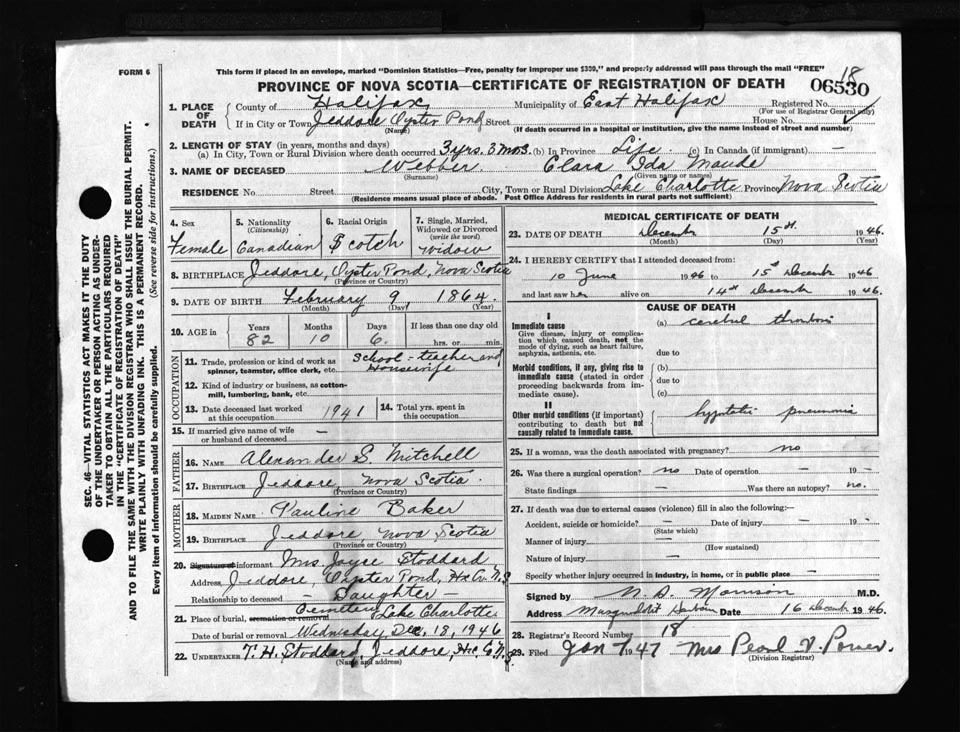 FORM 6
This form if placed in an envelope, marked "Dominion Statistics—Free, penalty for improper use $300," and properly addressed will pass through the mail "FREE"
18
PROVINCE OF NOVA SCOTIA—CERTIFICATE OF REGISTRATION OF DEATH
06530
1. PLACE OF DEATH
County of Halifax Municipality of East Halifax Registered No.
(For use of Registrar General only)
If in City or Town Jeddore Oyster Pond Street House No.
(Name) (If death occurred in a hospital or institution, give the name instead of street and number)
2. LENGTH OF STAY (in years, months and days)
(a) In City, Town or Rural Division where death occurred 3 yrs. 3 mos. (b) In Province Life (c) In Canada (if immigrant) —
3. NAME OF DECEASED Webber Clara Ida Maude
(Surname) (Given name or names)
RESIDENCE No. Street City, Town or Rural Division Lake Charlotte Province Nova Scotia
(Residence means usual place of abode. Post Office Address for residents in rural parts not sufficient)
4. Sex
Female
5. Nationality
(Citizenship)
Canadian
6. Racial Origin
Scotch
7. Single, Married, Widowed or Divorced
(write the word)
Widow
8. BIRTHPLACE Jeddore, Oyster Pond, Nova Scotia
(Province or Country)
9. DATE OF BIRTH February 9, 1864
(Month) (Day) (Year)
10. AGE in
Years Months Days If less than one day old
82 10 6. hrs. or min.
OCCUPATION
11. Trade, profession or kind of work as spinner, teamster, office clerk, etc. School-teacher and Housewife
12. Kind of industry or business, as cotton-mill, lumbering, bank, etc.
13. Date deceased last worked at this occupation 1941
14. Total yrs. spent in this occupation
15. If married give name of wife or husband of deceased —
FATHER
16. NAME Alexander S. Mitchell
17. BIRTHPLACE Jeddore, Nova Scotia.
(Province or Country)
MOTHER
18. MAIDEN NAME Pauline Baker
19. BIRTHPLACE Jeddore, Nova Scotia
(Province or Country)
20. Signature of informant Mrs. Joyce Stoddard
Address Jeddore, Oyster Pond, Hx Co. N.S
Relationship to deceased — Daughter —
21. Place of burial, cremation or removal Cemetery Lake Charlotte
Date of burial or removal Wednesday Dec. 18, 1946
22. UNDERTAKER T. H. Stoddard, Jeddore, Hx. Co N.S.
(Name and address)
MEDICAL CERTIFICATE OF DEATH
23. DATE OF DEATH December 15th. 1946
(Month) (Day) (Year)
24. I HEREBY CERTIFY that I attended deceased from:
10 June 1946 to 15th December 1946
and last saw her alive on 14th December 1946.
CAUSE OF DEATH
I
Immediate cause
Give disease, injury or complication which caused death, not the mode of dying, such as heart failure, asphyxia, asthenia, etc.
(a) cerebral thrombosis
due to
Morbid conditions, if any, giving rise to immediate cause (stated in order proceeding backwards from immediate cause).
(b)
due to
(c)
II
Other morbid conditions (if important) contributing to death but not causally related to immediate cause.
hypostatic pneumonia
25. If a woman, was the death associated with pregnancy? no
26. Was there a surgical operation? no Date of operation — 19 —
State findings — Was there an autopsy? no.
27. If death was due to external causes (violence) fill in also the following:—
Accident, suicide or homicide? — Date of injury — 19 —
(State which)
Manner of injury —
(How sustained)
Nature of injury —
Specify whether injury occurred in industry, in home, or in public place —
Signed by Morrison M.D.
Address Musquodoboit Harbour Date 16 December 1946.
28. Registrar's Record Number 18
29. Filed Jan 7 1947 Mrs Pearl V. Power.
(Division Registrar)
SEC. 46—VITAL STATISTICS ACT MAKES IT THE DUTY
OF THE UNDERTAKER OR PERSON ACTING AS UNDER-
TAKER TO OBTAIN ALL THE PARTICULARS REQUIRED
IN THE "CERTIFICATE OF REGISTRATION OF DEATH"
AND TO FILE THE SAME WITH THE DIVISION REGISTRAR WHO SHALL ISSUE THE BURIAL PERMIT.
WRITE PLAINLY WITH UNFADING INK. THIS IS A PERMANENT RECORD.
Every item of information should be carefully supplied. (See reverse side for instructions.)